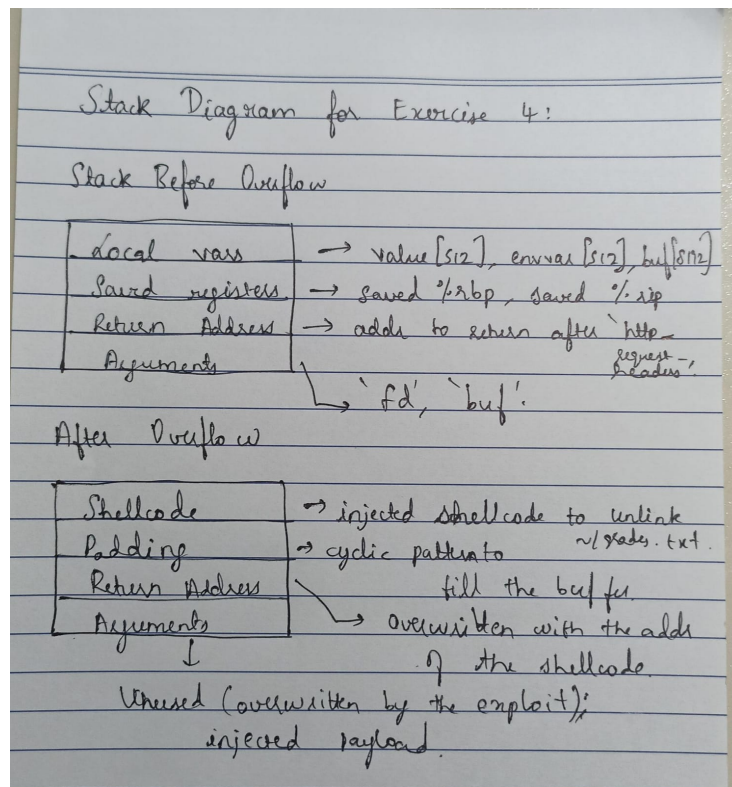 Stack Diagram for Exercise 4:
Stack Before Overflow
Local vars → value[512], envvar[512], buf[8192]
Saved registers → saved %rbp, saved %rip
Return Address → addr to return after `http_
request_
headers'.
Arguments
`fd', `buf'.
After Overflow
Shellcode → injected shellcode to unlink
~/grades.txt.
Padding → cyclic pattern to
fill the buffer.
Return Address
Arguments → overwritten with the addr
of the shellcode.
↓
Unused (overwritten by the exploit);
injected payload.